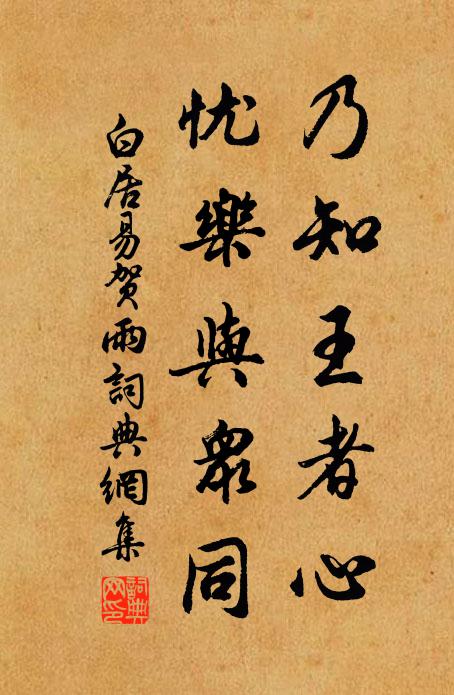 乃知王者心
忧樂與眾同
白居易贺雨詞典網集
詞典网印